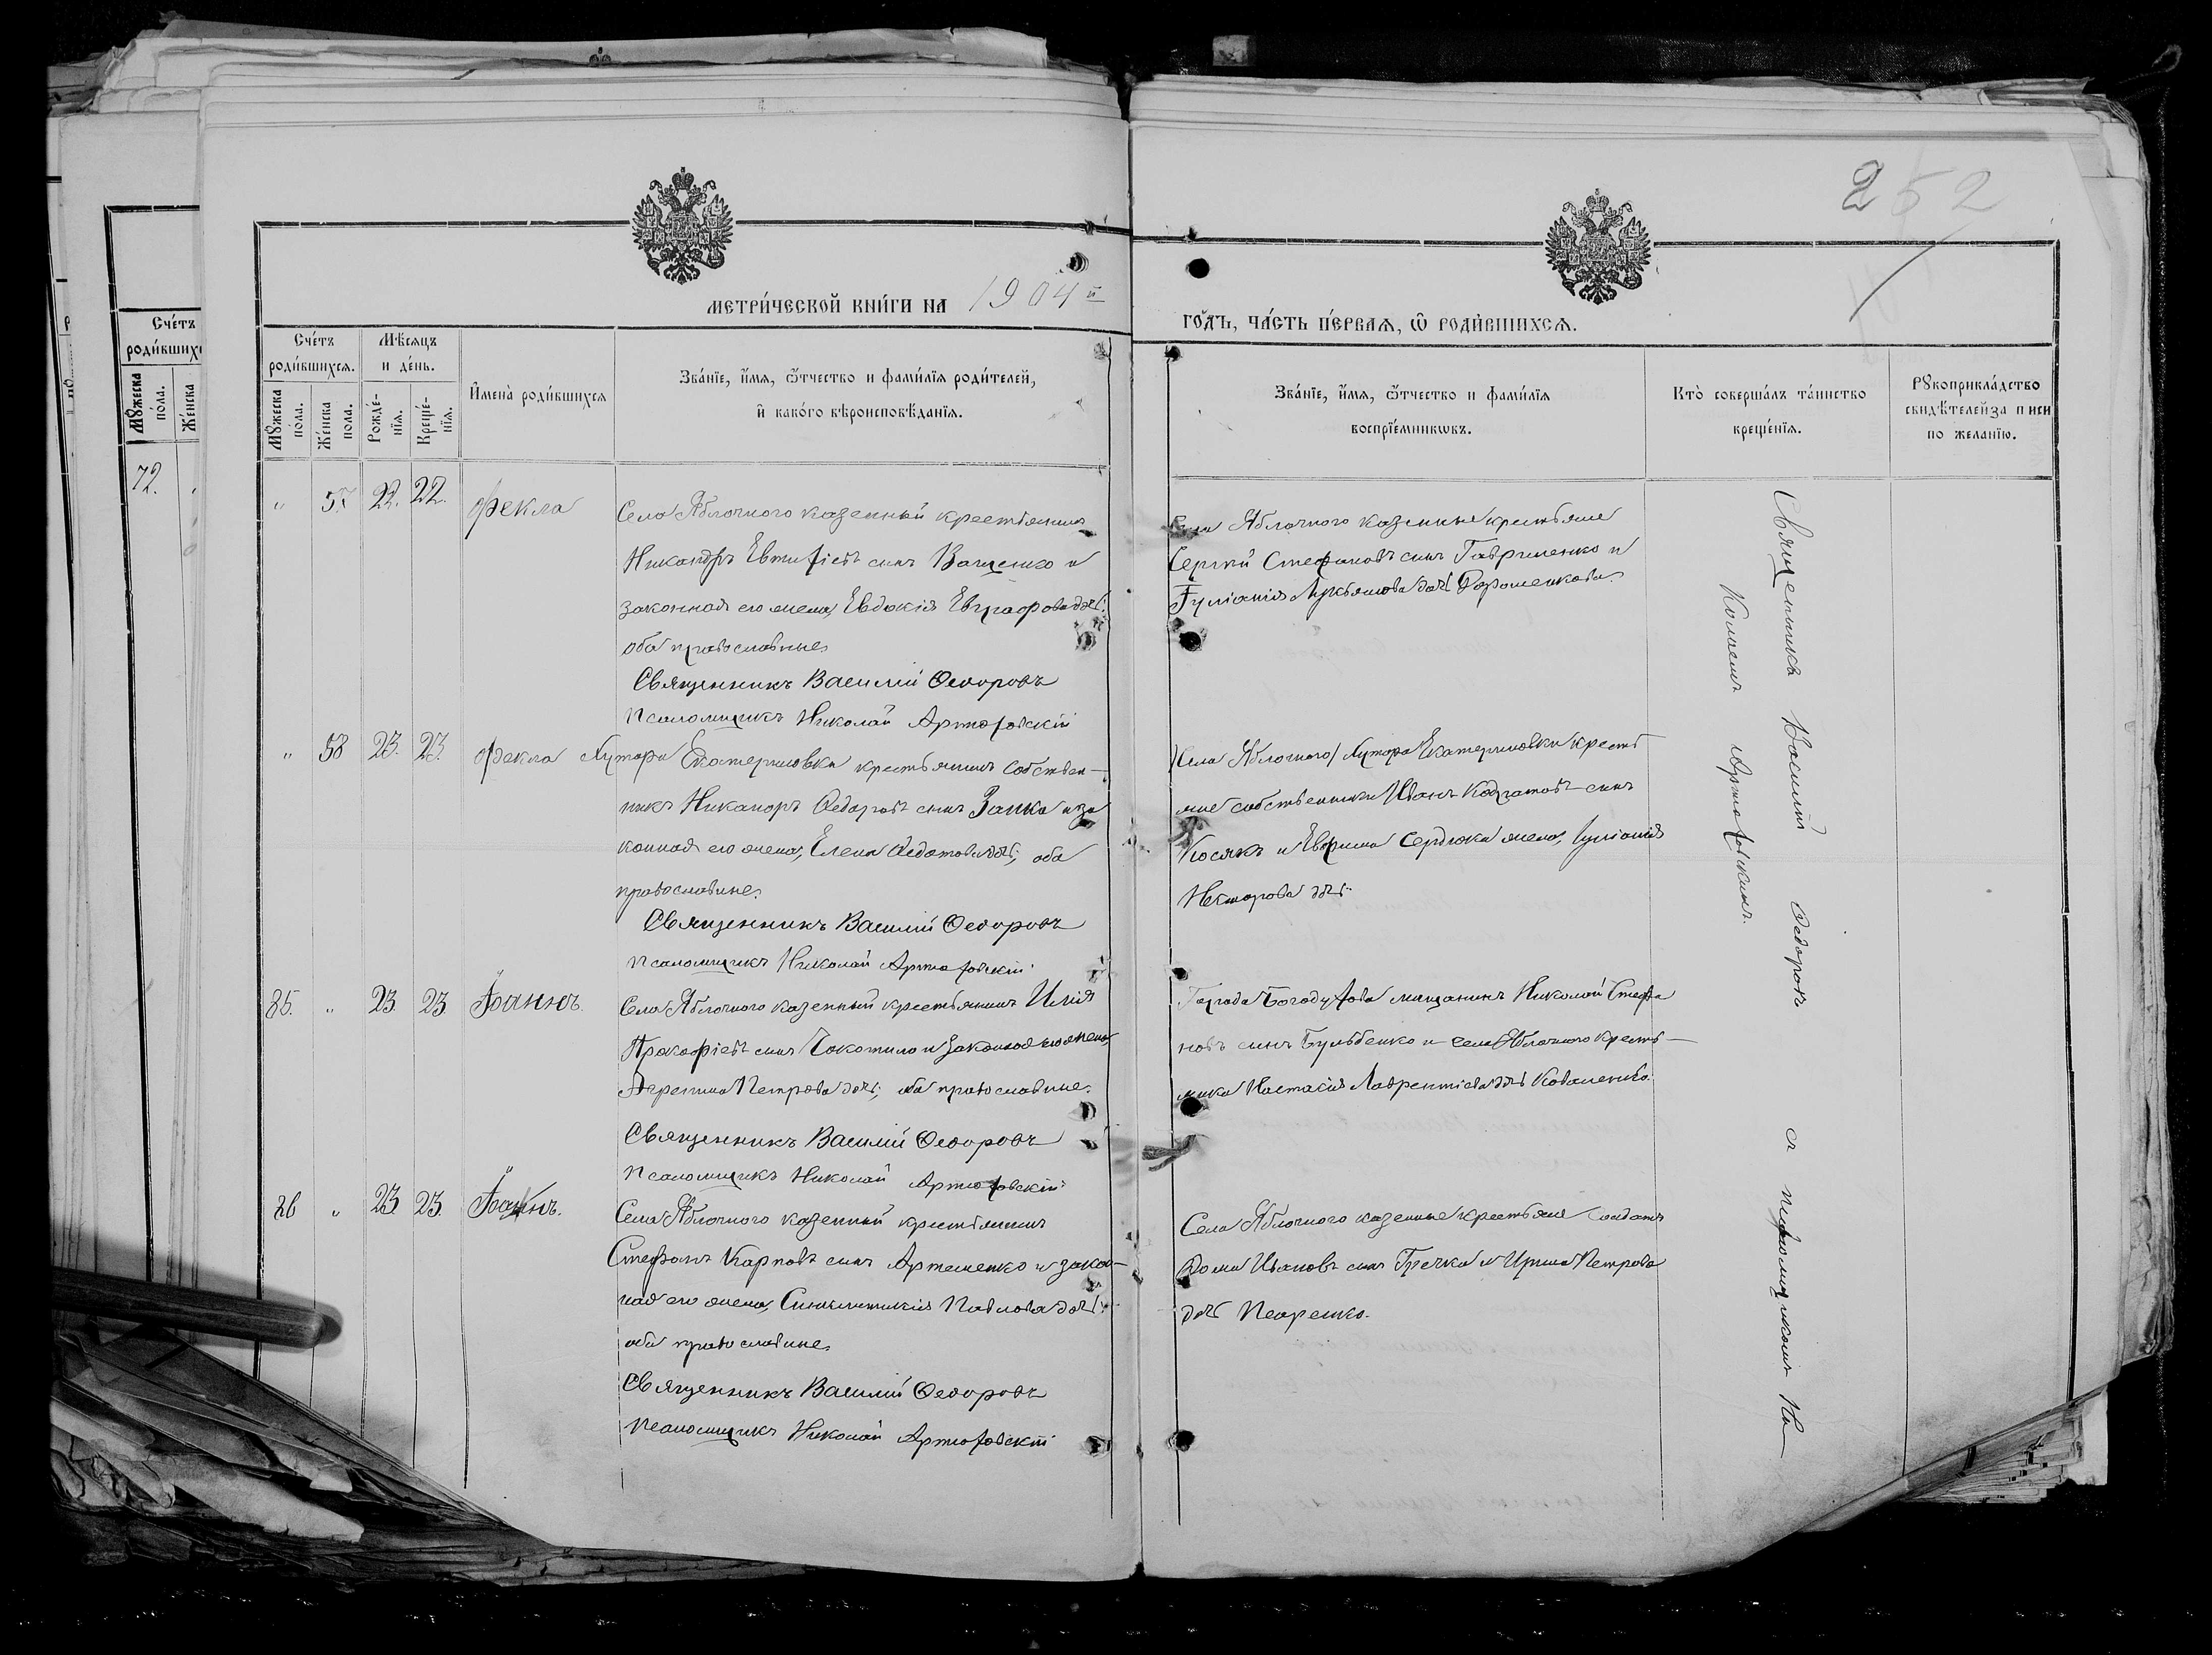 252
МЕТРИ́ЧЕСКОЙ КНИ́ГИ НА 1904й
ГО́ДЪ, ЧА́СТЬ ПЕ́РВАѦ, Ѡ҆ РОДИ́ВШИХСѦ.
Сче́тъ
роди́вшихсѧ.
Мꙋ́жеска
по́ла.
Же́нска
по́ла.
Мѣ́сѧцъ
и де́нь.
Рожде́-
нїѧ.
Креще́-
нїѧ.
И҆мена̀ роди́вшихсѧ
Зва́нїе, и҆́мѧ, ѻ҆́тчество и фами́лїѧ роди́телей,
и҆ како́гѡ вѣроисповѣ́данїѧ.
Зва́нїе, и҆́мѧ, ѻ҆́тчество и фами́лїѧ
воспрїе́мникѡвъ.
Кто̀ соверша́лъ та́инство
креще́нїѧ.
Рꙋкоприкла́дство
свидѣ́телей за писи
по жела́нїю.
Сче́тъ
Мꙋ́жеска
по́ла.
Же́нска
72.
" 57 22. 22. Фекла
Села Яблочного казенный крестьянинъ
Никандръ Евтихіевъ сынъ Ващенко и
законная его жена, Евдокія Евграфова дочь;
оба православные
Священникъ Василій Ѳеодоровъ
Псаломщикъ Николай Артюховскій
Села Яблочного казенные крестьяне
Сергѣй Стефановъ сынъ Гавриленко и
Іуліанія Лукьянова дочь Дорошенкова.
" 58 23. 23. Фекла
Хутора Екатериновки крестьянинъ собствен-
никъ Никаноръ Ѳедоровъ сынъ Заика и за
конная его жена, Елена Ѳедотова дочь; оба
православные.
Священникъ Василій Ѳеодоровъ
Псаломщикъ Николай Артюховскій
/Села Яблочного/ Хутора Екатериновки кресть
яне собственники Иванъ Кодратовъ сынъ
Косякъ и Евфима Сердюка жена, Іуліанія
Нестерова дочь.
85. " 23. 23. Іоаннъ.
Села Яблочного казенный крестьянинъ Илія
Прокофіевъ сынъ Чокотило и законная его жена,
Агрепина Петрова дочь; оба православные.
Священникъ Василій Ѳеодоровъ
Псаломщикъ Николай Артюховскій
Города Богодухова мищанинъ Николай Стефа
новъ сынъ Бульбенко и села Яблочного кресть-
янка Настасія Лаврентіева дочь Коваленко.
86 " 23. 23. Іоаннъ.
Села Яблочного казенный крестьянинъ
Стефанъ Карповъ сынъ Артеменко и закон-
ная его жена, Синклитикія Павлова дочь;
оба православные
Священникъ Василій Ѳеодоровъ
Псаломщикъ Николай Артюховскій
Села Яблочного казенные крестьяне солдатъ
Ѳома Ивановъ сынъ Гречка и Ирина Петрова
дочь
Священникъ Василій Ѳедоровъ съ псаломщикомъ Ни-
колаемъ Артюховскимъ.